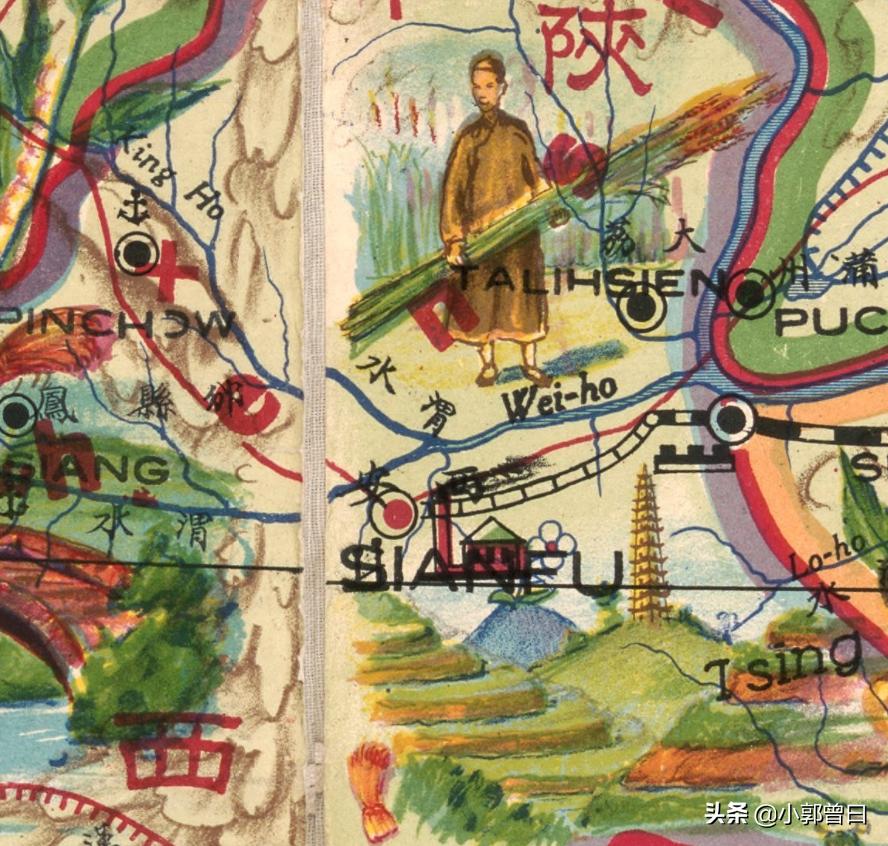 陝
King Ho
大荔
蒲州
TALIHSIEN
PUC
PINCHOW
邠縣
鳳
渭水
Wei-ho
SIANG
渭水
西安
SIANFU
Lo-ho
水
Tsing
西
头条 @小郭曾曰